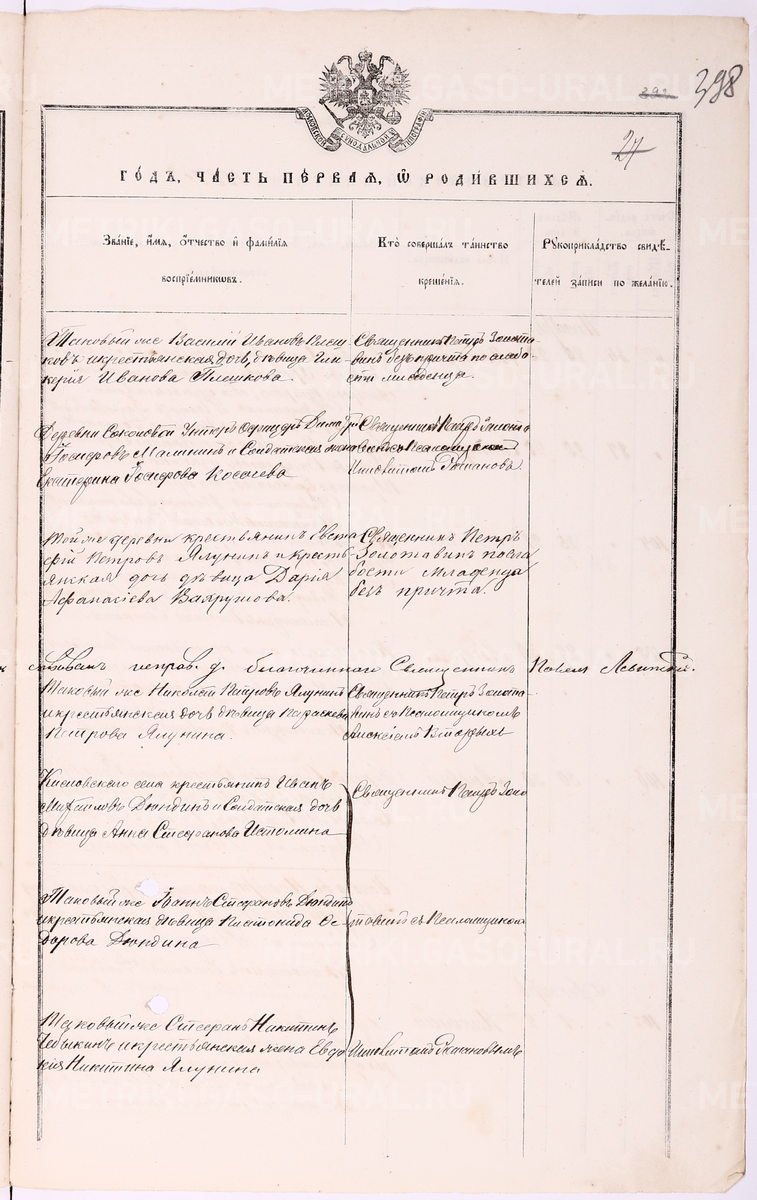 398
27
МОСКОВСКОЙ СѴНОДАЛЬНОЙ ТИПОГРАФІИ
ГОДЪ, ЧАСТЬ ПЕРВАЯ, Ѡ РОДИВШИХСЯ.
Званіе, имя, отчество и фамилія воспріемниковъ.
Кто совершалъ таинство крещенія.
Рукоприкладство свидѣтелей записи по желанію.
Таковый же Василій Ивановъ Плеш-
ковъ и крестьянская дочь, дѣвица Гли-
керія Иванова Плешкова.
Священникъ Петръ Золота-
винъ безъ причта по слабо-
сти младенца.
Деревни Соколовой Унтеръ офицеръ Димитр
Малнинъ и Солдатская жена
Екатерина Косачева
Священникъ Петръ Золота
Романовъ
Той же деревни крестьянинъ Евста-
фій Петровъ Ялунинъ и кресть-
янская дочь дѣвица Дарія
Афанасіева Вахрушова.
Священникъ Петръ
Золотавинъ по сла
бости младенца
безъ причта.
исправ. д. благочиннаго Священникъ Павелъ
Таковый же Николай Петровъ Ялунинъ
и крестьянская дочь дѣвица Параскева
Петрова Ялунина.
Священникъ Петръ Золота-
винъ съ Псаломщикомъ
Алексіемъ Вторыхъ
Кисловскаго села крестьянинъ Иванъ
Михаиловъ Дюндинъ и Солдатская дочь
дѣвица Анна Стефанова Истомина
Священникъ Петръ Золо
Таковый же Іоаннъ Стефановъ Дюндинъ
и крестьянская дѣвица Ѳео-
дорова Дюндина
тавинъ съ Псаломщикомъ
Таковый же Стефанъ Никитинъ
и крестьянская жена Евдо
кія Никитина Ялунина
Романовымъ